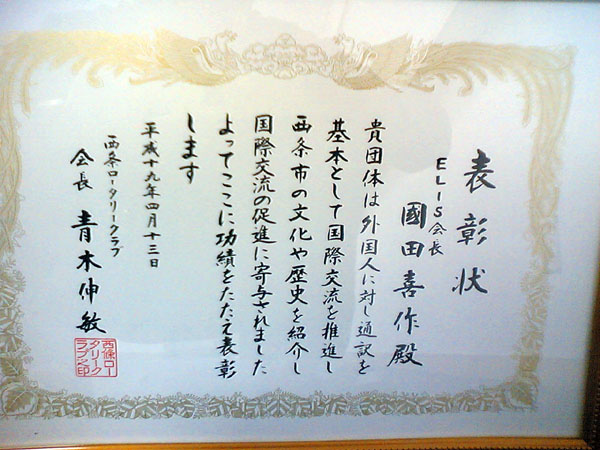 表彰状
ELIS会長
國田喜作殿
貴団体は外国人に対し通訳を
基本として国際交流を推進し
西条市の文化や歴史を紹介し
国際交流の促進に寄与されました
よってここに功績をたたえ表彰
します
平成十九年四月十三日
西条ロータリークラブ
会長 青木伸敏
西條ロー
タリーク
ラブ之印